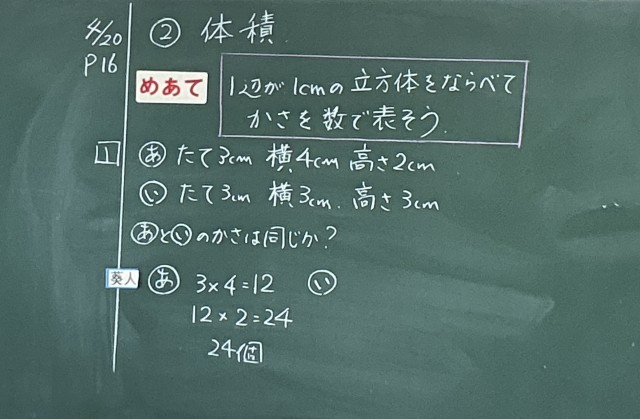 4/20 ② 体積
P16
めあて 1辺が1cmの立方体をならべて
かさを数で表そう.
1 あ たて3cm 横4cm 高さ2cm
い たて3cm 横3cm. 高さ3cm
あといのかさは同じか?
葵人 あ 3×4=12 い
12×2=24
24個